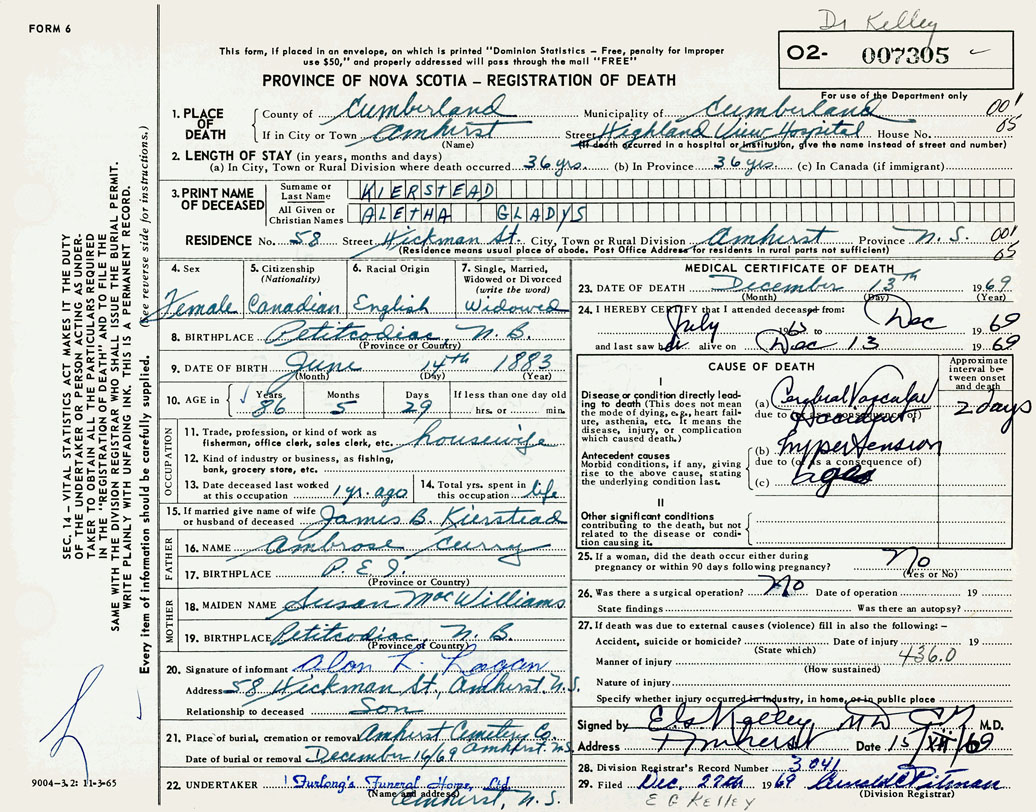 Dr Kelley
FORM 6
This form, if placed in an envelope, on which is printed "Dominion Statistics – Free, penalty for improper
use $50," and properly addressed will pass through the mail "FREE"
O2- 007305
PROVINCE OF NOVA SCOTIA – REGISTRATION OF DEATH
For use of the Department only
1. PLACE OF DEATH
County of Cumberland Municipality of Cumberland 001
If in City or Town Amhirst Street Highland View Hospital House No. 05
(Name) (If death occurred in a hospital or institution, give the name instead of street and number)
2. LENGTH OF STAY (in years, months and days)
(a) In City, Town or Rural Division where death occurred 36 yrs. (b) In Province 36 yrs. (c) In Canada (if immigrant)
3. PRINT NAME OF DECEASED
Surname or Last Name KIERSTEAD
All Given or Christian Names ALETHA GLADYS
RESIDENCE No. 58 Street Hickman St. City, Town or Rural Division Amhirst Province N. S. 001
(Residence means usual place of abode. Post Office Address for residents in rural parts not sufficient) 05
4. Sex Female
5. Citizenship (Nationality) Canadian
6. Racial Origin English
7. Single, Married, Widowed or Divorced (write the word) Widowed
8. BIRTHPLACE Petitcodiac, N. B.
(Province or Country)
9. DATE OF BIRTH June 14th 1883
(Month) (Day) (Year)
10. AGE in Years 86 Months 5 Days 29 If less than one day old
hrs. or min.
OCCUPATION
11. Trade, profession, or kind of work as fisherman, office clerk, sales clerk, etc. housewife
12. Kind of industry or business, as fishing, bank, grocery store, etc.
13. Date deceased last worked at this occupation 1 yr. ago
14. Total yrs. spent in this occupation life
15. If married give name of wife or husband of deceased James B. Kierstead
FATHER
16. NAME Ambrose Curry
17. BIRTHPLACE P.E.I.
(Province or Country)
MOTHER
18. MAIDEN NAME Susan MacWilliams
19. BIRTHPLACE Petitcodiac, N. B.
(Province or Country)
20. Signature of informant Alon L. Hogan
Address 58 Hickman St, Amhirst, N.S.
Relationship to deceased Son
21. Place of burial, cremation or removal Amhirst Cemetery Co.
Date of burial or removal December 16/69 Amhirst. N.S.
22. UNDERTAKER Furlong's Funeral Home, Ltd.
(Name and address) Amhirst, N. S.
MEDICAL CERTIFICATE OF DEATH
23. DATE OF DEATH December 13th 1969
(Month) (Day) (Year)
24. I HEREBY CERTIFY that I attended deceased from:
July 1965 to Dec 1969
and last saw her alive on Dec 13 1969
CAUSE OF DEATH
Approximate interval between onset and death
I
Disease or condition directly leading to death (This does not mean the mode of dying, e.g., heart failure, asthenia, etc. It means the disease, injury, or complication which caused death.)
(a) Cerebral Vascular Accident 2 days
due to (or as a consequence of)
Antecedent causes
Morbid conditions, if any, giving rise to the above cause, stating the underlying condition last.
(b) hypertension
due to (or as a consequence of)
(c)
II
Other significant conditions contributing to the death, but not related to the disease or condition causing it.
25. If a woman, did the death occur either during pregnancy or within 90 days following pregnancy? No
(Yes or No)
26. Was there a surgical operation? No Date of operation 19
State findings Was there an autopsy?
27. If death was due to external causes (violence) fill in also the following: –
Accident, suicide or homicide? Date of injury 19
(State which) 436.0
Manner of injury
(How sustained)
Nature of injury
Specify whether injury occurred in industry, in home, or in public place
Signed by E.G. Kelley MD CM M.D.
Address Amherst Date 15/XII/69
28. Division Registrar's Record Number 3041
29. Filed Dec. 27th 1969 Arnold C Pitman
(Division Registrar)
E G KELLEY
SEC. 14 – VITAL STATISTICS ACT MAKES IT THE DUTY
OF THE UNDERTAKER OR PERSON ACTING AS UNDER-
TAKER TO OBTAIN ALL THE PARTICULARS REQUIRED
IN THE "REGISTRATION OF DEATH" AND TO FILE THE
SAME WITH THE DIVISION REGISTRAR WHO SHALL ISSUE THE BURIAL PERMIT.
WRITE PLAINLY WITH UNFADING INK. THIS IS A PERMANENT RECORD.
Every item of information should be carefully supplied. (See reverse side for instructions.)
9004-3.2: 11-3-65